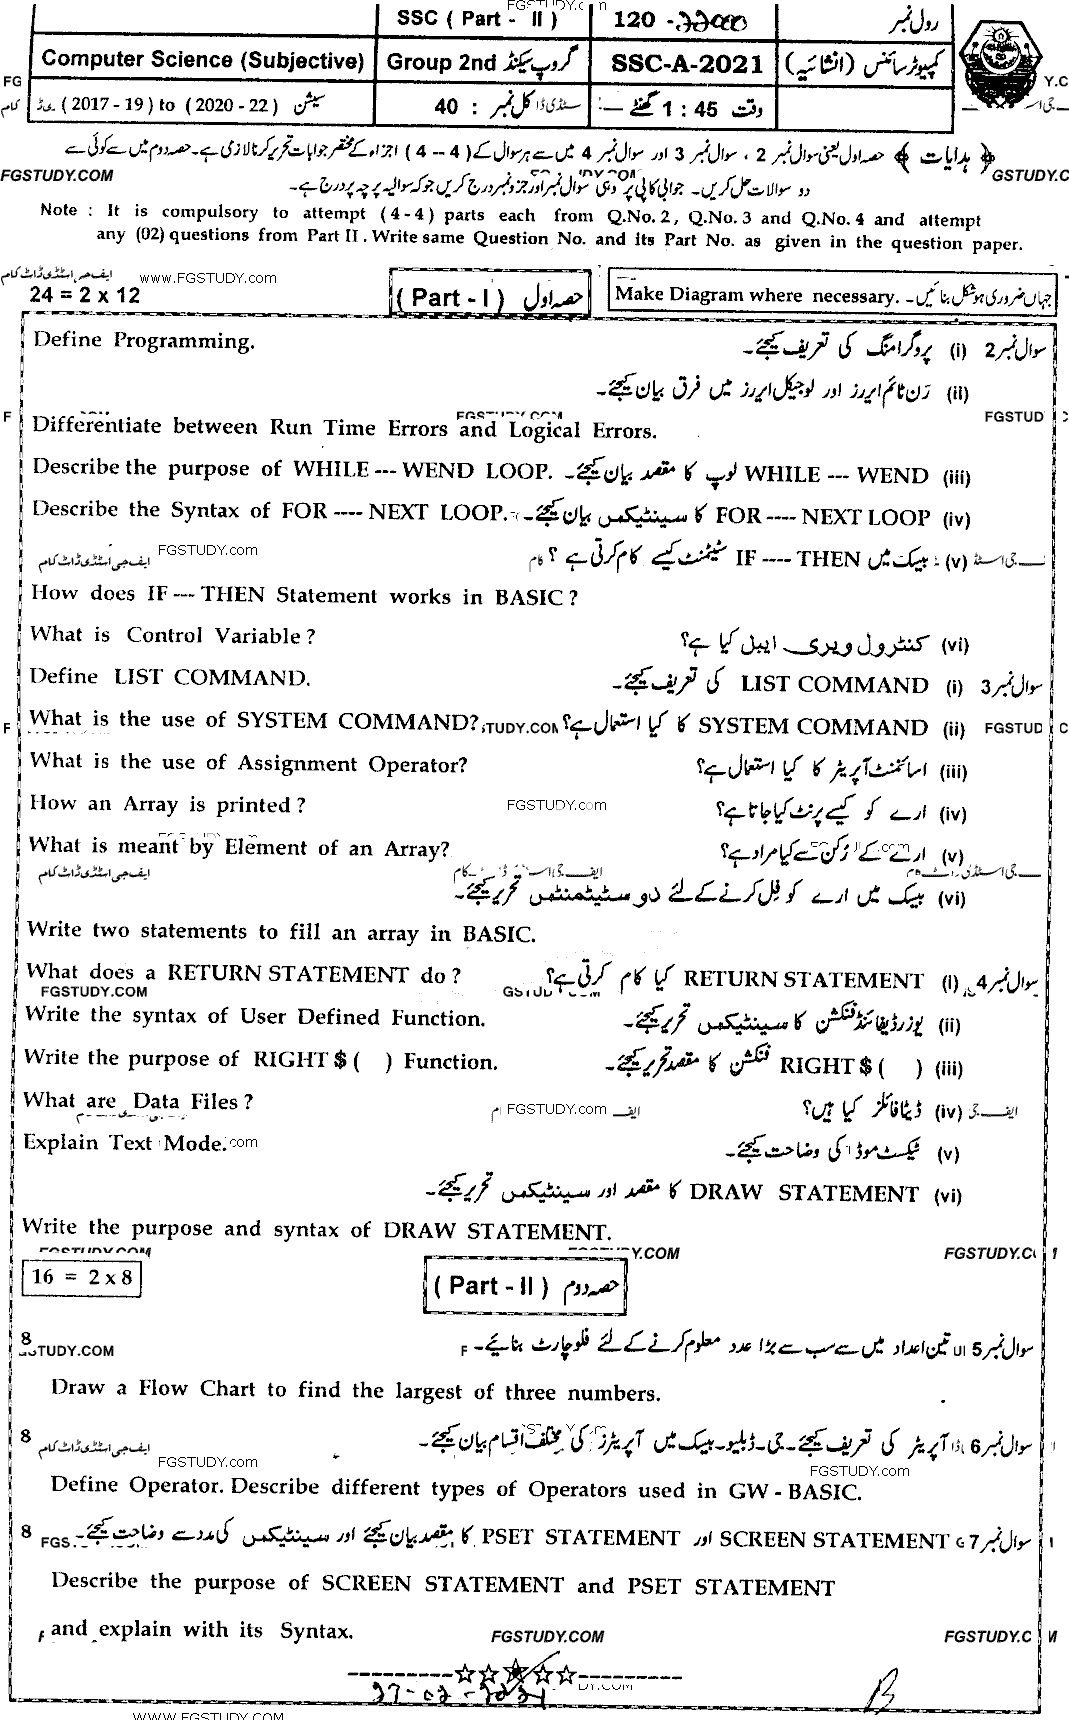 FGSTUDY.com
SSC ( Part - II ) 120 - 22000 رول نمبر
Computer Science (Subjective) Group 2nd گروپ سیکنڈ SSC-A-2021 کمپیوٹر سائنس (انشائیہ)
سیشن ( 2017 - 19 ) to ( 2020 - 22 ) کل نمبر : 40 وقت 1 : 45 گھنٹے
﴿ ہدایات ﴾ حصہ اول یعنی سوال نمبر 2 ، سوال نمبر 3 اور سوال نمبر 4 میں سے ہر سوال کے ( 4 -- 4 ) اجزاء کے مختصر جوابات تحریر کرنا لازمی ہے۔ حصہ دوم میں سے کوئی سے
FGSTUDY.COM
دو سوالات حل کریں۔ جوابی کاپی پر وہی سوال نمبر اور جزو نمبر درج کریں جو کہ سوالیہ پرچہ پر درج ہے۔
Note : It is compulsory to attempt ( 4 - 4 ) parts each from Q.No. 2, Q.No. 3 and Q.No. 4 and attempt
any (02) questions from Part II . Write same Question No. and its Part No. as given in the question paper.
ایف جی اسٹڈی ڈاٹ کام www.FGSTUDY.com
24 = 2 x 12 ( Part - I ) حصہ اول Make Diagram where necessary. جہاں ضروری ہو شکل بنائیں۔
Define Programming. سوال نمبر 2 (i) پروگرامنگ کی تعریف کیجئے۔
(ii) رَن ٹائم ایررز اور لوجیکل ایررز میں فرق بیان کیجئے۔
FGSTUDY.COM
Differentiate between Run Time Errors and Logical Errors.
Describe the purpose of WHILE --- WEND LOOP. (iii) WHILE --- WEND لوپ کا مقصد بیان کیجئے۔
Describe the Syntax of FOR ---- NEXT LOOP. (iv) FOR ---- NEXT LOOP کا سینٹیکس بیان کیجئے۔
ایف جی اسٹڈی ڈاٹ کام FGSTUDY.com (v) بیسک میں IF ---- THEN سٹیٹمنٹ کیسے کام کرتی ہے ؟
How does IF --- THEN Statement works in BASIC ?
What is Control Variable ? (vi) کنٹرول ویری ایبل کیا ہے؟
Define LIST COMMAND. سوال نمبر 3 (i) LIST COMMAND کی تعریف کیجئے۔
What is the use of SYSTEM COMMAND? (ii) SYSTEM COMMAND کا کیا استعمال ہے؟
What is the use of Assignment Operator? (iii) اسائمنٹ آپریٹر کا کیا استعمال ہے؟
How an Array is printed ? FGSTUDY.com (iv) ارے کو کیسے پرنٹ کیا جاتا ہے؟
What is meant by Element of an Array? (v) ارے کے رُکن سے کیا مراد ہے؟
ایف جی اسٹڈی ڈاٹ کام
(vi) بیسک میں ارے کو فِل کرنے کے لئے دو سٹیٹمنٹس تحریر کیجئے۔
Write two statements to fill an array in BASIC.
What does a RETURN STATEMENT do ? سوال نمبر 4 (i) RETURN STATEMENT کیا کام کرتی ہے؟
FGSTUDY.COM
Write the syntax of User Defined Function. (ii) یوزر ڈیفائنڈ فنکشن کا سینٹیکس تحریر کیجئے۔
Write the purpose of RIGHT $ ( ) Function. (iii) RIGHT $ ( ) فنکشن کا مقصد تحریر کیجئے۔
What are Data Files ? FGSTUDY.com (iv) ڈیٹا فائلز کیا ہیں؟
Explain Text Mode. (v) ٹیکسٹ موڈ کی وضاحت کیجئے۔
(vi) DRAW STATEMENT کا مقصد اور سینٹیکس تحریر کیجئے۔
Write the purpose and syntax of DRAW STATEMENT.
FGSTUDY.COM
16 = 2 x 8 ( Part - II ) حصہ دوم
8 سوال نمبر 5 تین اعداد میں سے سب سے بڑا عدد معلوم کرنے کے لئے فلو چارٹ بنائیے۔
Draw a Flow Chart to find the largest of three numbers.
8 سوال نمبر 6 آپریٹر کی تعریف کیجئے۔ جی۔ڈبلیو۔بیسک میں آپریٹرز کی مختلف اقسام بیان کیجئے۔
ایف جی اسٹڈی ڈاٹ کام FGSTUDY.com FGSTUDY.com
Define Operator. Describe different types of Operators used in GW - BASIC.
8 سوال نمبر 7 SCREEN STATEMENT اور PSET STATEMENT کا مقصد بیان کیجئے اور سینٹیکس کی مدد سے وضاحت کیجئے۔
Describe the purpose of SCREEN STATEMENT and PSET STATEMENT
and explain with its Syntax. FGSTUDY.COM
27-02-2021
WWW.FGSTUDY.COM